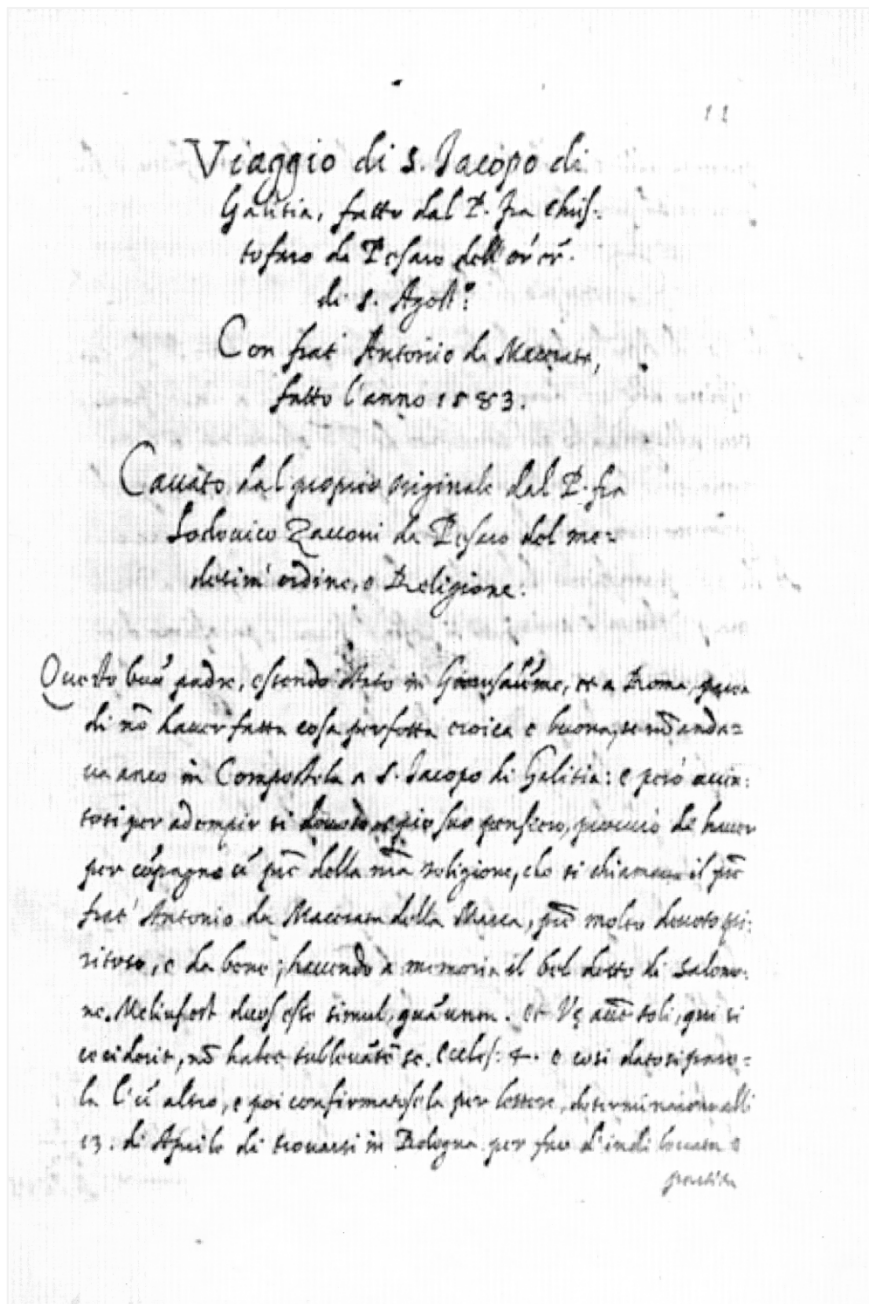 11
Viaggio di S. Jacopo di
Galitia, fatto dal P. fra Chris-
tofaro da Pesaro dell'
di S. Agost.º
Con frat' Antonio da Macerata,
fatto l'anno 1583.
Cavato dal proprio originale dal P. fra
Lodovico Zacconi da Pesaro del me-
desim' ordine, e Religione.
Questo buō padre, essendo stato in Gierusalēme, et a Roma,
di nō haver fatta cosa perfetta eroica e buona, se nō anda=
va anco in Compostela a S. Jacopo di Galitia: e però accin:
tosi per adempir si devoto e pio suo pensiero, procurò de haver
per cōpagno ū prē della mā religione, che si chiamava il prē
frat' Antonio da Macerata della Marca, prē molto devoto spi:
ritoso, e da bene; havendo a memoria il bel detto di Salomo:
ne. Melius est duos esse simul, quā unum. et Vę soli, qui si
ceciderit, nō habet sublevātē se. Eccles: 4. e cosi datosi paro=
la l'ū altro, e poi confirmatosela per lettere, determinarono alli
13. di Aprile di trovarsi in Bologna per far d'indi
partita